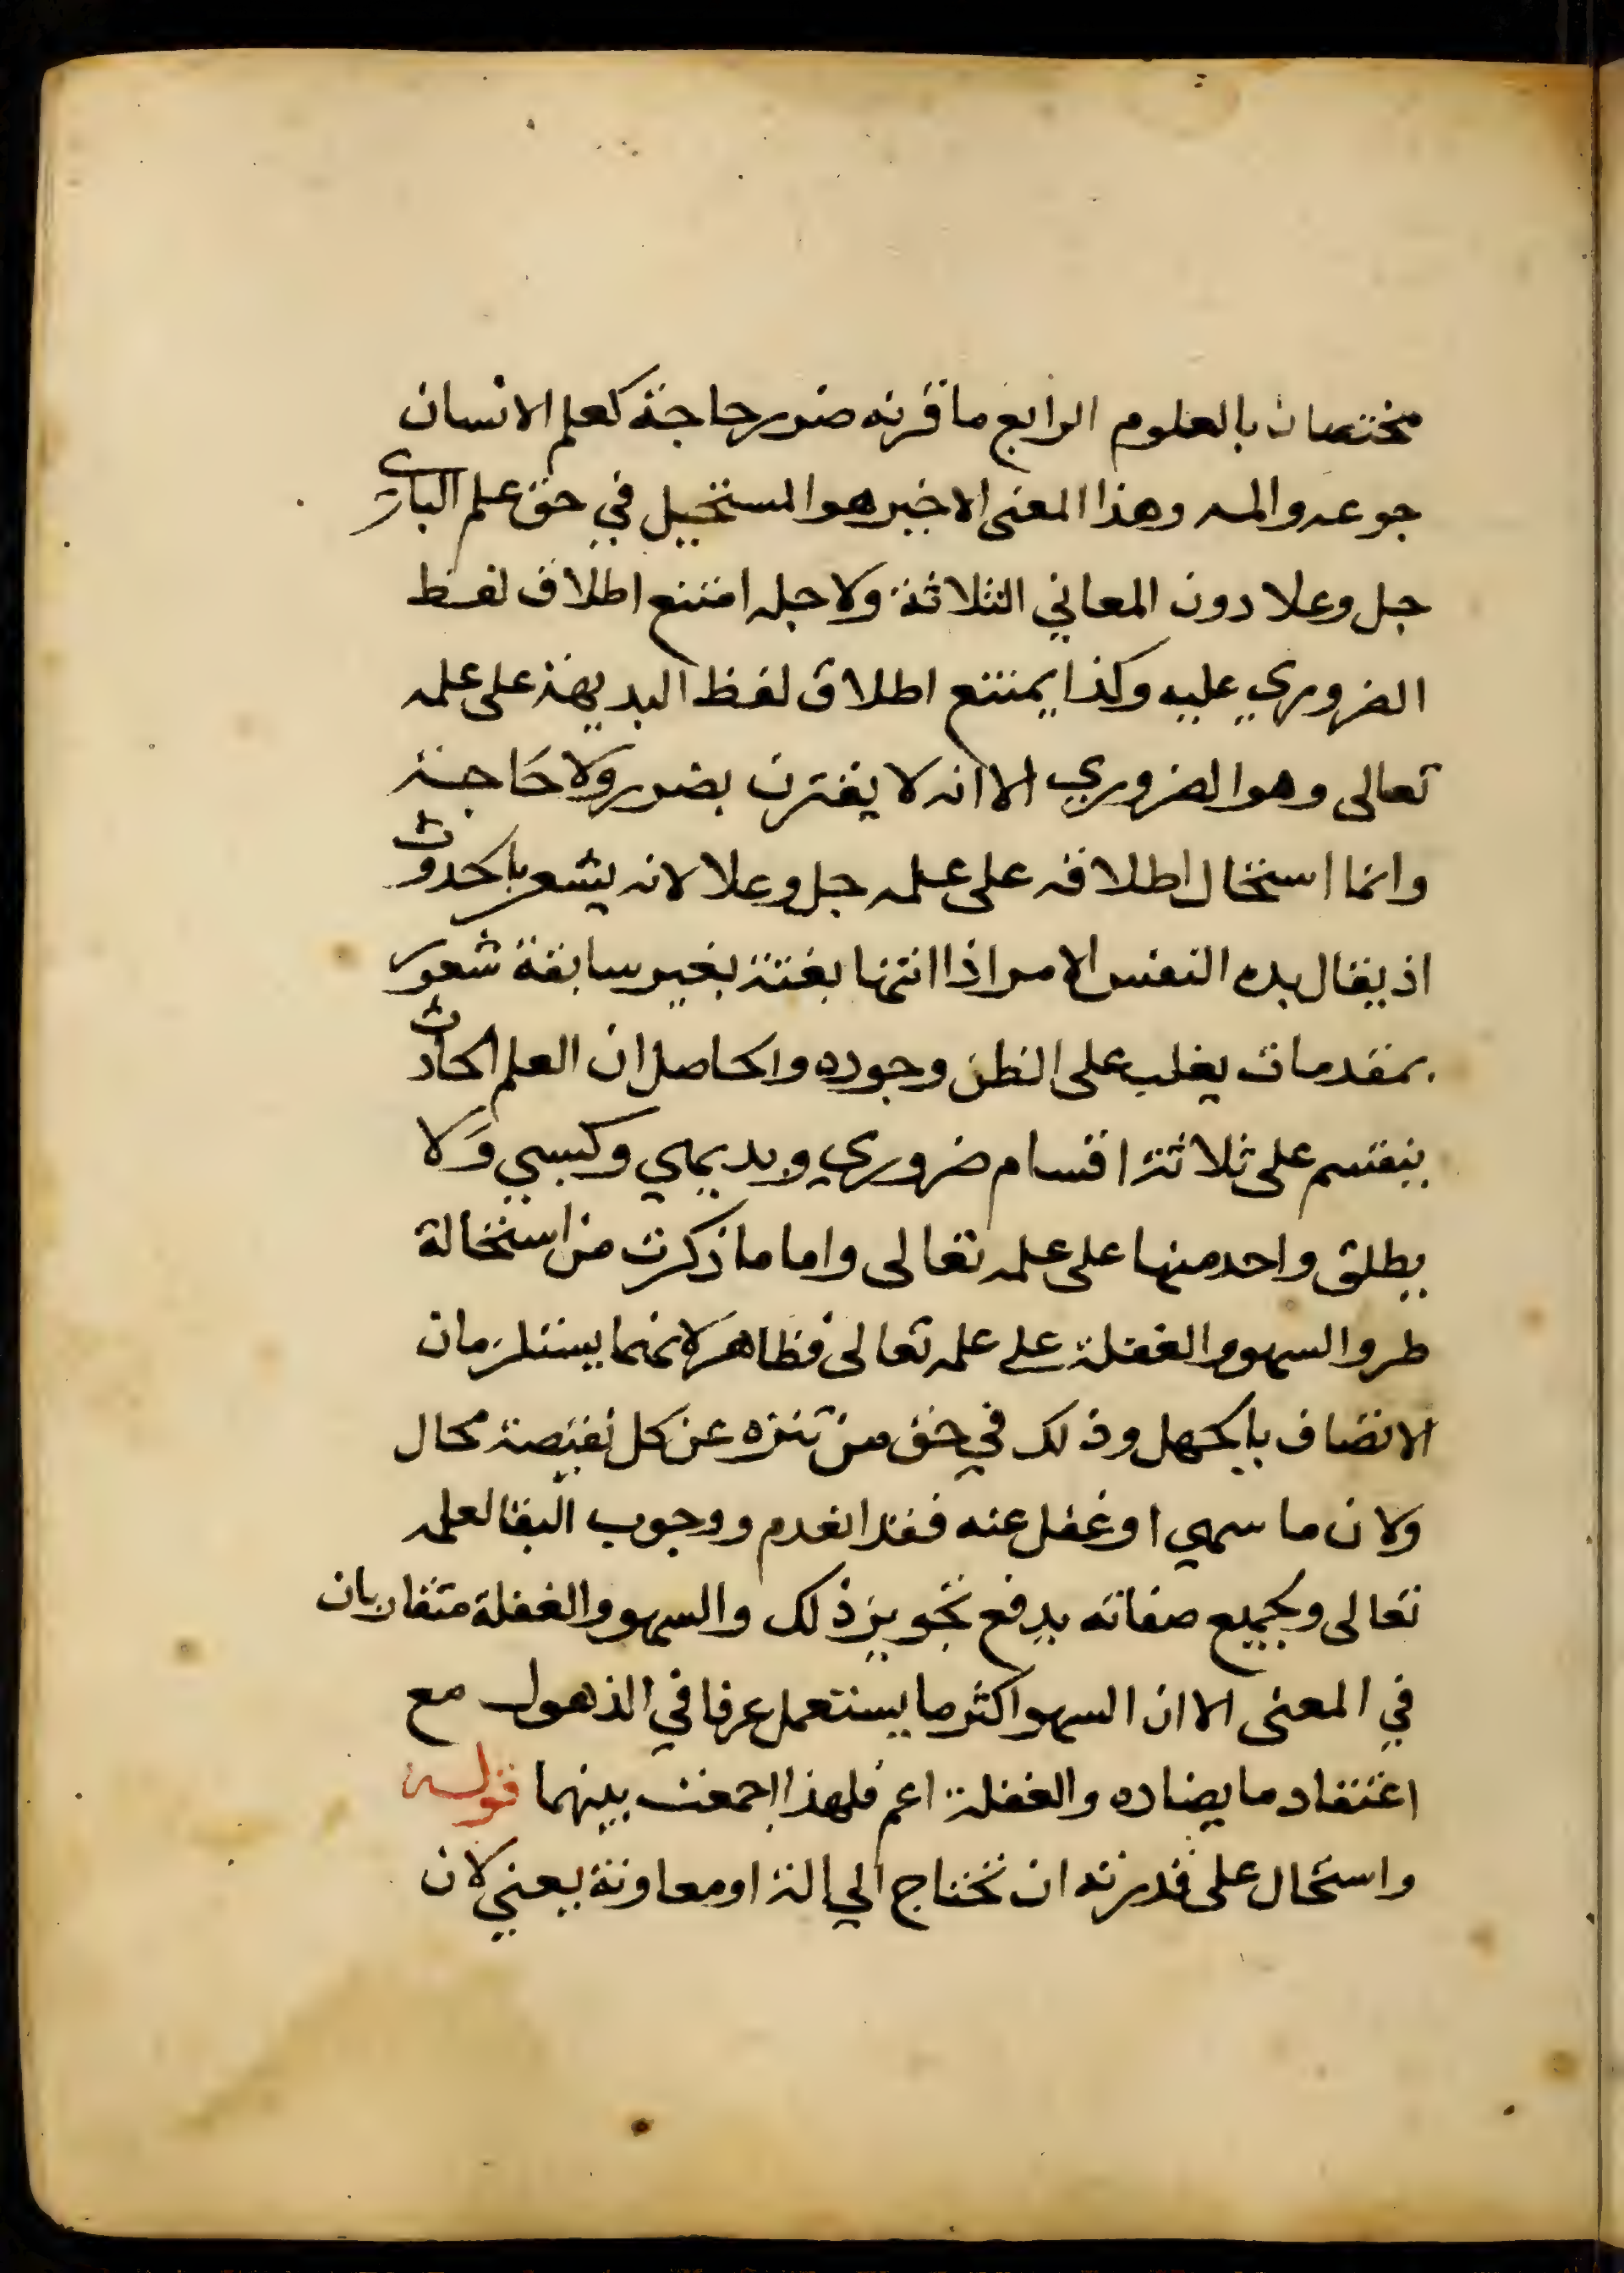 مختصان بالعلوم الرابع ما قرنه ضرر حاجة كعلم الانسان
جوعه والمه وهذا المعنى الاخير هو المستحيل في حق علم الباري
جل وعلا دون المعاني الثلاثة ولاجله امتنع اطلاق لفظ
الضروري عليه وكذا يمتنع اطلاق لفظ البديهة على علمه
تعالى وهو الضروري الا انه لا يقترن بضرر ولا حاجة
وانما استحال اطلاقه على علمه جل وعلا لانه يشعر بالحدوث
اذ يقال بده النفس الامر اذا اتتها بغتة بغير سابقة شعور
بمقدمات يغلب على الظن وجوده والحاصل ان العلم الحادث
ينقسم على ثلاثة اقسام ضروري وبديهي وكسبي ولا
يطلق واحد منها على علمه تعالى واما ما ذكرت من استحالة
طرو السهو والغفلة على علمه تعالى فظاهر لانهما يستلزمان
الاتصاف بالجهل وذلك في حق من تنزه عن كل نقيصة محال
ولان ما سهي او غفل عنه فقد انعدم ووجوب البقا لعلمه
تعالى وبجميع صفاته يدفع تجويز ذلك والسهو والغفلة متقاربان
في المعنى الا ان السهو اكثر ما يستعمل عرفا في الذهول مع
اعتقاد ما يضاده والغفلة اعم فلهذا اجمعت بينهما قوله
واستحال على قدرته ان تحتاج الي الة او معاونة يعني لان